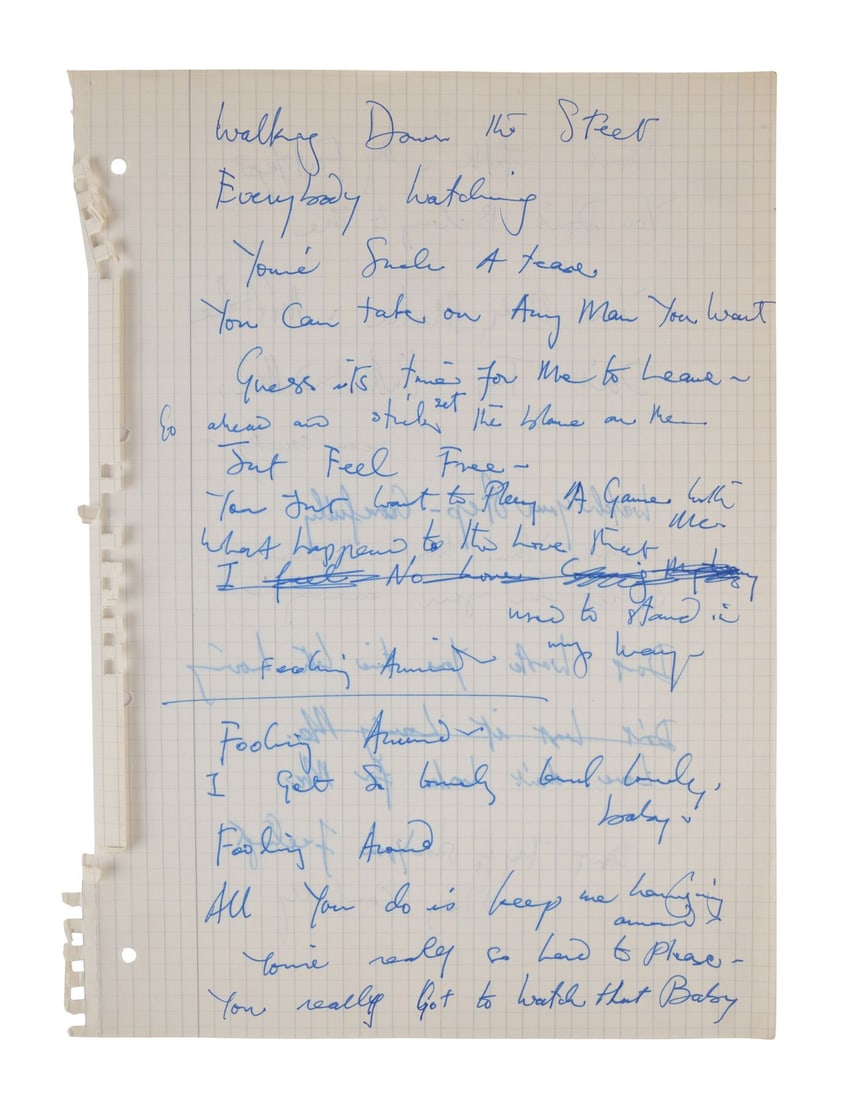 Walking Down the Steet
Everybody Watching
You're Such A tease
You Can take on Any Man You Want
Guess its time for Me to Leave ~
Go ahead and stick set the blame on Me
Just Feel Free –
You Just want to Play A Game With Me
What happened to the Love that
I feel No Love
used to stand in
my way –
Fooling Around ~
Fooling Around ~
I Get So Lonely Lonely,
baby.
Fooling Around
All You do is keep me hanging
around
You're really so hard to Please –
You really Got to Watch that Baby